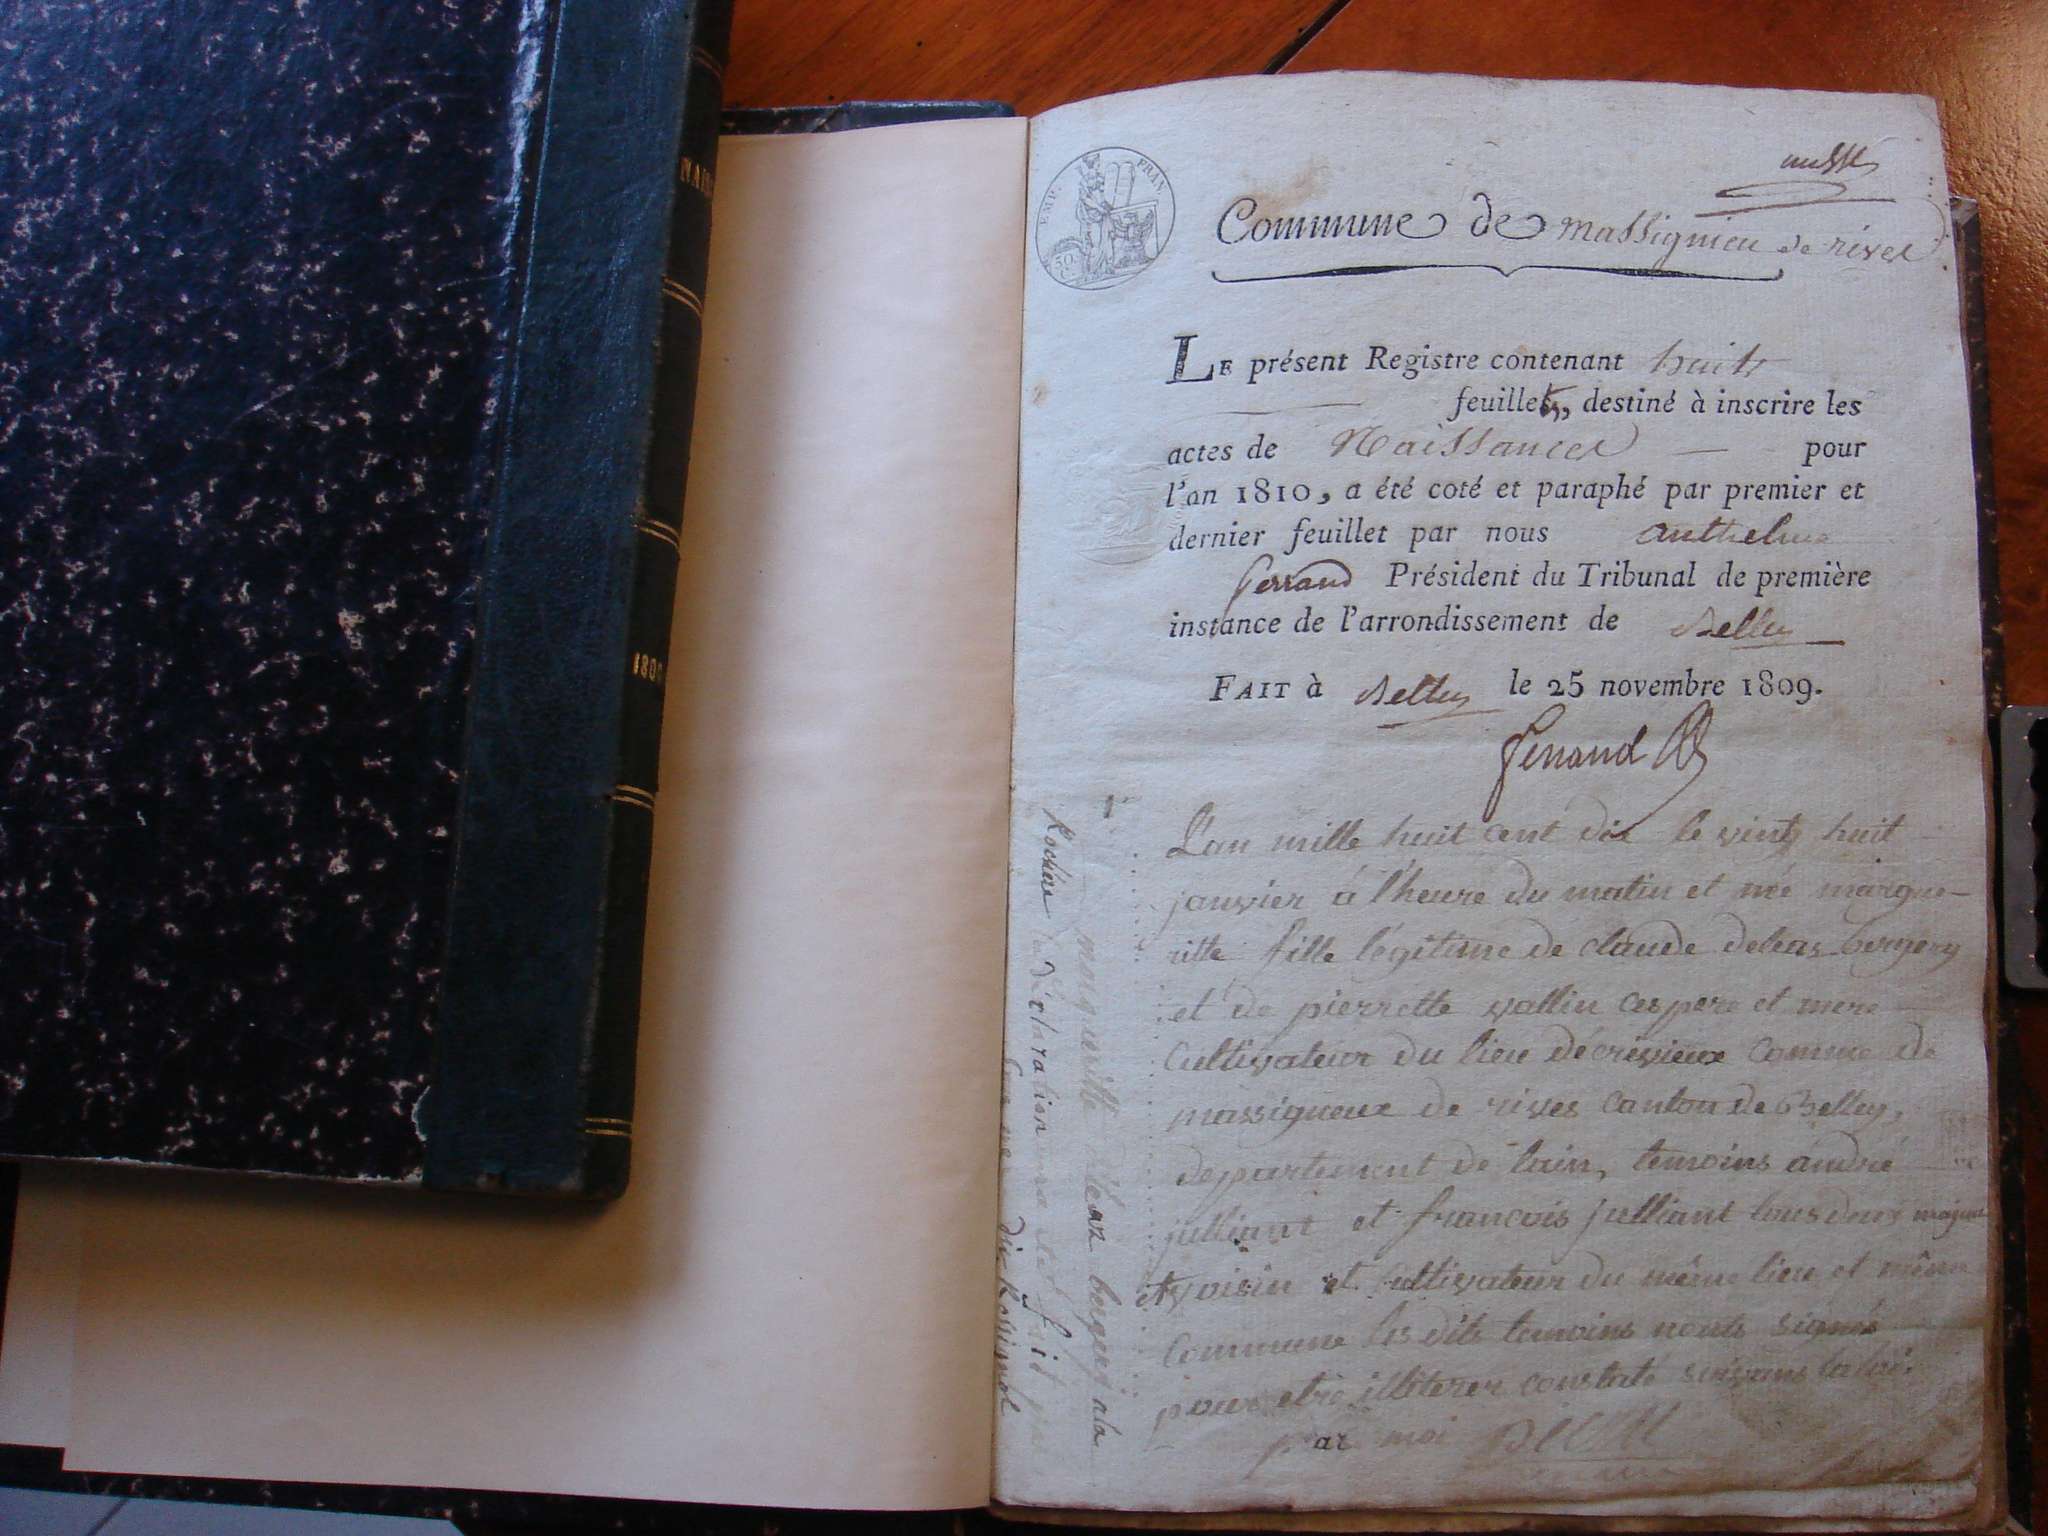 NAISS
1800
EMP. FRAN.
50.
Commune de Massignieu de rives
LE présent Registre contenant huit
feuillets, destiné à inscrire les
actes de Naissances pour
l'an 1810, a été coté et paraphé par premier et
dernier feuillet par nous Anthelme
Ferrand Président du Tribunal de première
instance de l'arrondissement de Belley
FAIT à Belley le 25 novembre 1809.
Ferrand
L'an mille huit cent dix le vingt huit
janvier à l'heure du matin et née margue-
ritte fille légitime de claude
et de pierrette vallin ces pere et mere
Cultivateur du lieu de crevieux comme de
massigneux de rives canton de Belley,
departement de lain, temoins andré
julliant et francois julliant tous deux majeur
et voisin et Cultivateur du même lieu et même
Commune les dits temoins nonts signé
pour etre illiterer constaté suivant la loi.
par moi
margueritte
Declaration